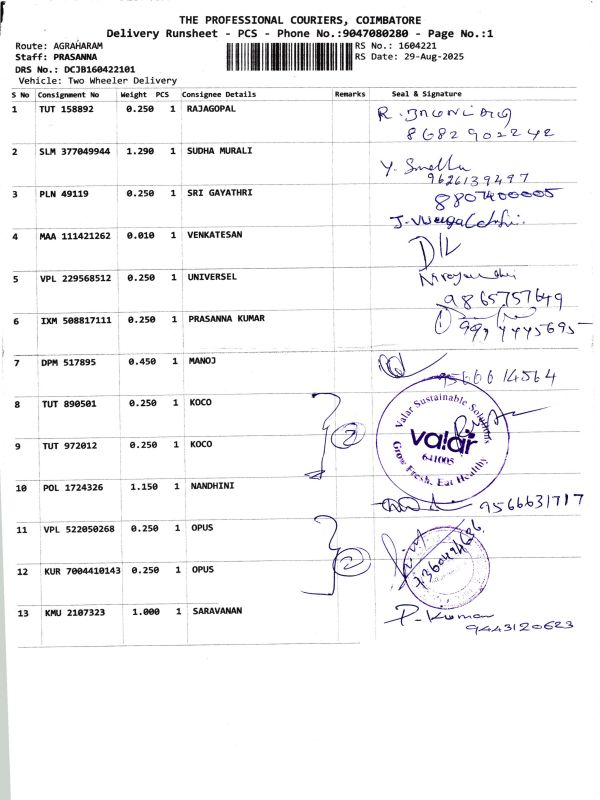 THE PROFESSIONAL COURIERS, COIMBATORE
Delivery Runsheet - PCS - Phone No.:9047080280 - Page No.:1
Route: AGRAHARAM RS No.: 1604221
Staff: PRASANNA RS Date: 29-Aug-2025
DRS No.: DCJB160422101
Vehicle: Two Wheeler Delivery
S No Consignment No Weight PCS Consignee Details Remarks Seal & Signature
1 TUT 158892 0.250 1 RAJAGOPAL
8682902242
2 SLM 377049944 1.290 1 SUDHA MURALI
9626139497
3 PLN 49119 0.250 1 SRI GAYATHRI 8807400005
4 MAA 111421262 0.010 1 VENKATESAN
5 VPL 229568512 0.250 1 UNIVERSEL
9865757649
6 IXM 508817111 0.250 1 PRASANNA KUMAR
7 DPM 517895 0.450 1 MANOJ
9566614564
8 TUT 890501 0.250 1 KOCO
2
Valar Sustainable Solutions
valar
641005
Grow Fresh. Eat Healthy
9 TUT 972012 0.250 1 KOCO
10 POL 1724326 1.150 1 NANDHINI
9566631717
11 VPL 522050268 0.250 1 OPUS
2
7360494636
12 KUR 7004410143 0.250 1 OPUS
13 KMU 2107323 1.000 1 SARAVANAN P. Kumar
9443120623